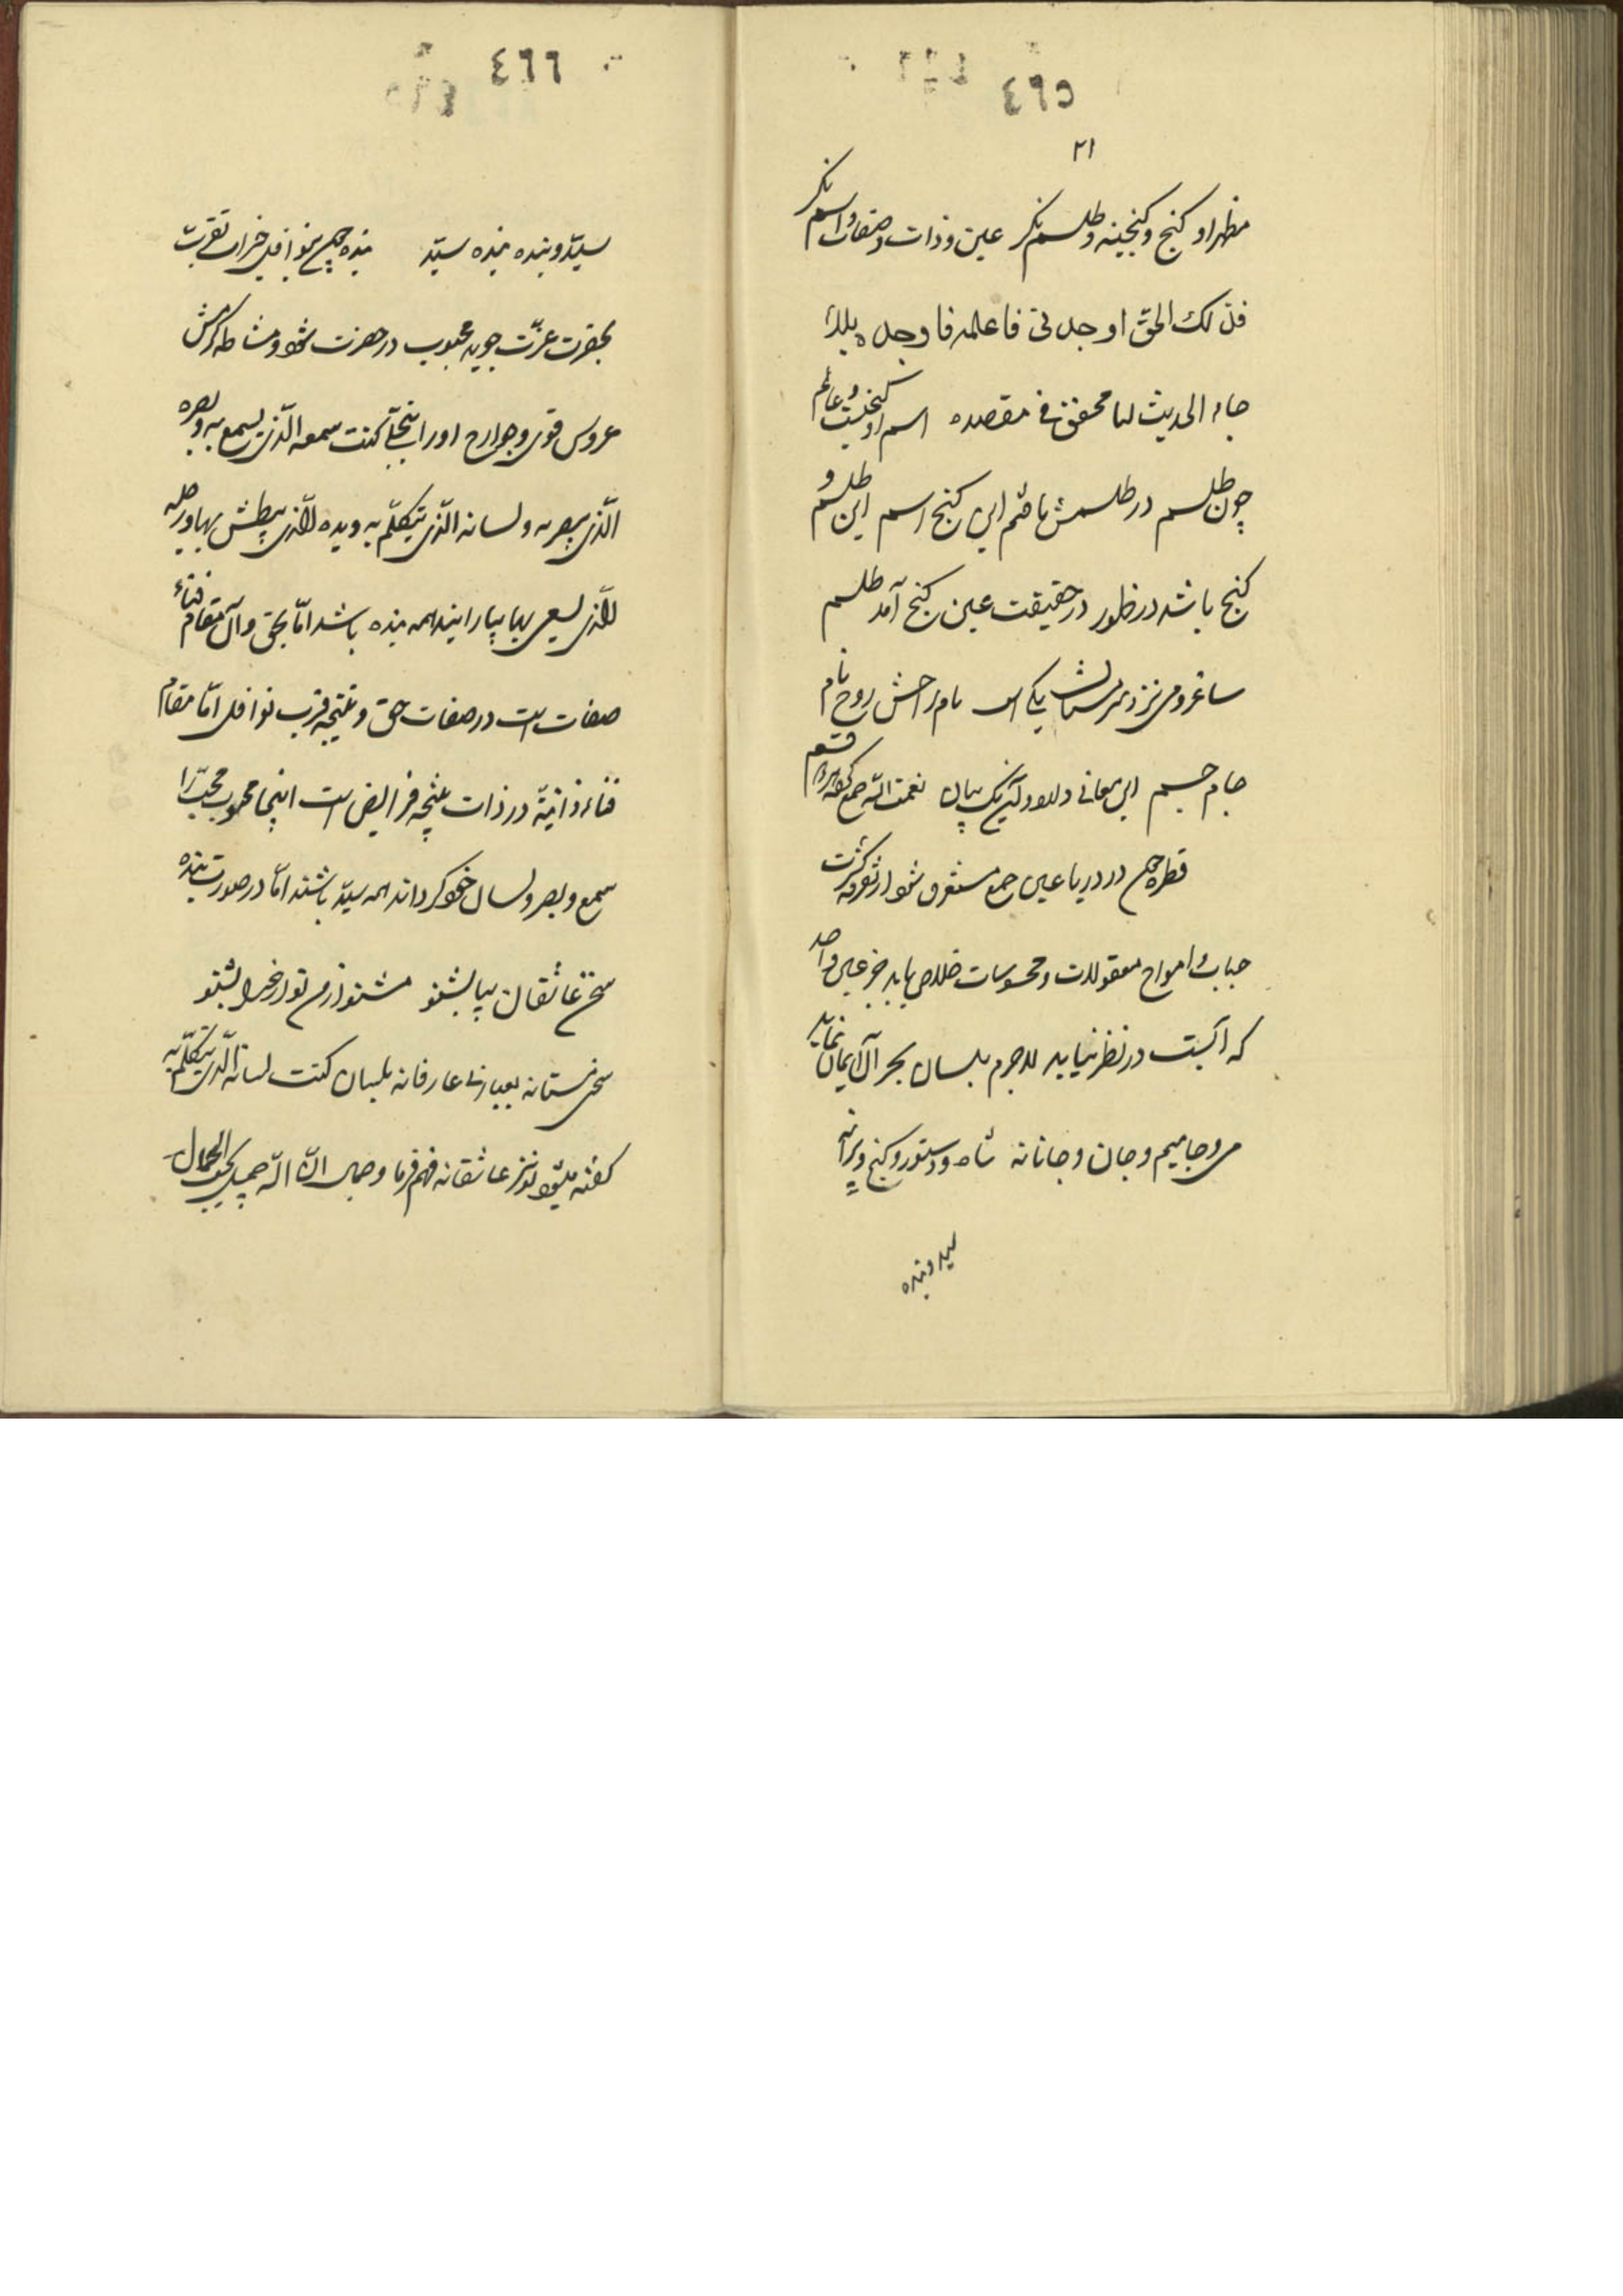 ٤٦٥
٢١
مظهر او کنج و کنجینه و طلسم نکر عین و ذات و صفات و اسم نکر
فذلک الحق اوجدنی فاعلمه فاوجده بذا
جاء الحدیث لنا محقق فی مقصده اسم او کنجست و عالم
چون طلسم در طلسمش یافتم این کنج اسم این طلسم و
کنج باشد در ظهور در حقیقت عین کنج آمد طلسم
ساغر و می نزد سرمستان یکی است نام راحش روح نام
جام جسم این معانی دلاور آنرا نیک بیان نعمت الله جمع کرده
قطره چون در دریا عین جمع مستغرق شود از تفرقه کثرت
حباب و امواج معقولات و محسوسات خلاص یابد جز عین واحد
که آبست در نظر نیاید لاجرم بلسان بحر آن
می و جامیم و جان و جانانه شاه و دستور و کنج ویرانه
سید و بنده
٤٦٦
سیّد و بنده بنده سیّد بنده چون بنوافل خیرات تقرّب
بحضرت عزّت جوید محبوب در حضرت شود و مشاطه کرمش
عروس قوی و جوارح او را بتجلّی کنت سمعه الّذی یسمع به و بصره
الّذی یبصر به و لسانه الّذی یتکلّم به و یده الّذی یبطش بها و رجله
الّذی یسعی بها بیاراید همه بنده باشد امّا بحق و آن مقام فناء
صفات است در صفات حق و نتیجه قرب نوافل امّا مقام
فناء ذاتیّه در ذات نتیجه فرایض است اینجا محبوب محبّ را
سمع و بصر و لسان خود کرداند همه سیّد باشند امّا در صورت بنده
سخن عاشقان بیا بشنو مشنو از من تو از خدا بشنو
سخن مستانه بعبارت عارفانه بلسان کنت لسانه الّذی یتکلّم به
کفته میشود تو نیز عاشقانه فهم فرما و جمال انّ الله جمیل یحبّ الجمال